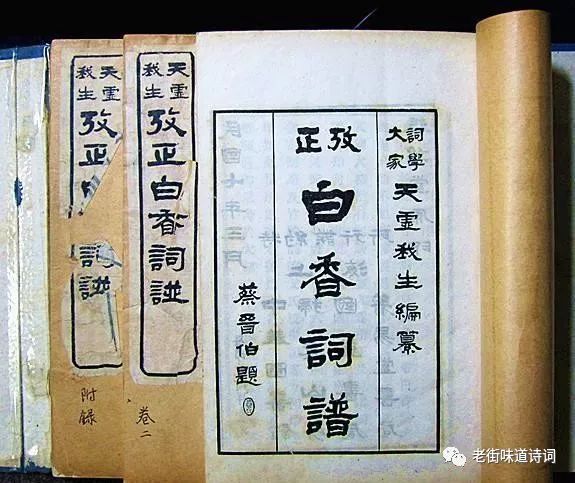 詞學大家天虛我生編纂
攷正
白香詞譜
蔡晉伯題
天虛我生
攷正白香詞譜
卷二
天虛我生
攷正
詞譜
附錄
老街味道诗词